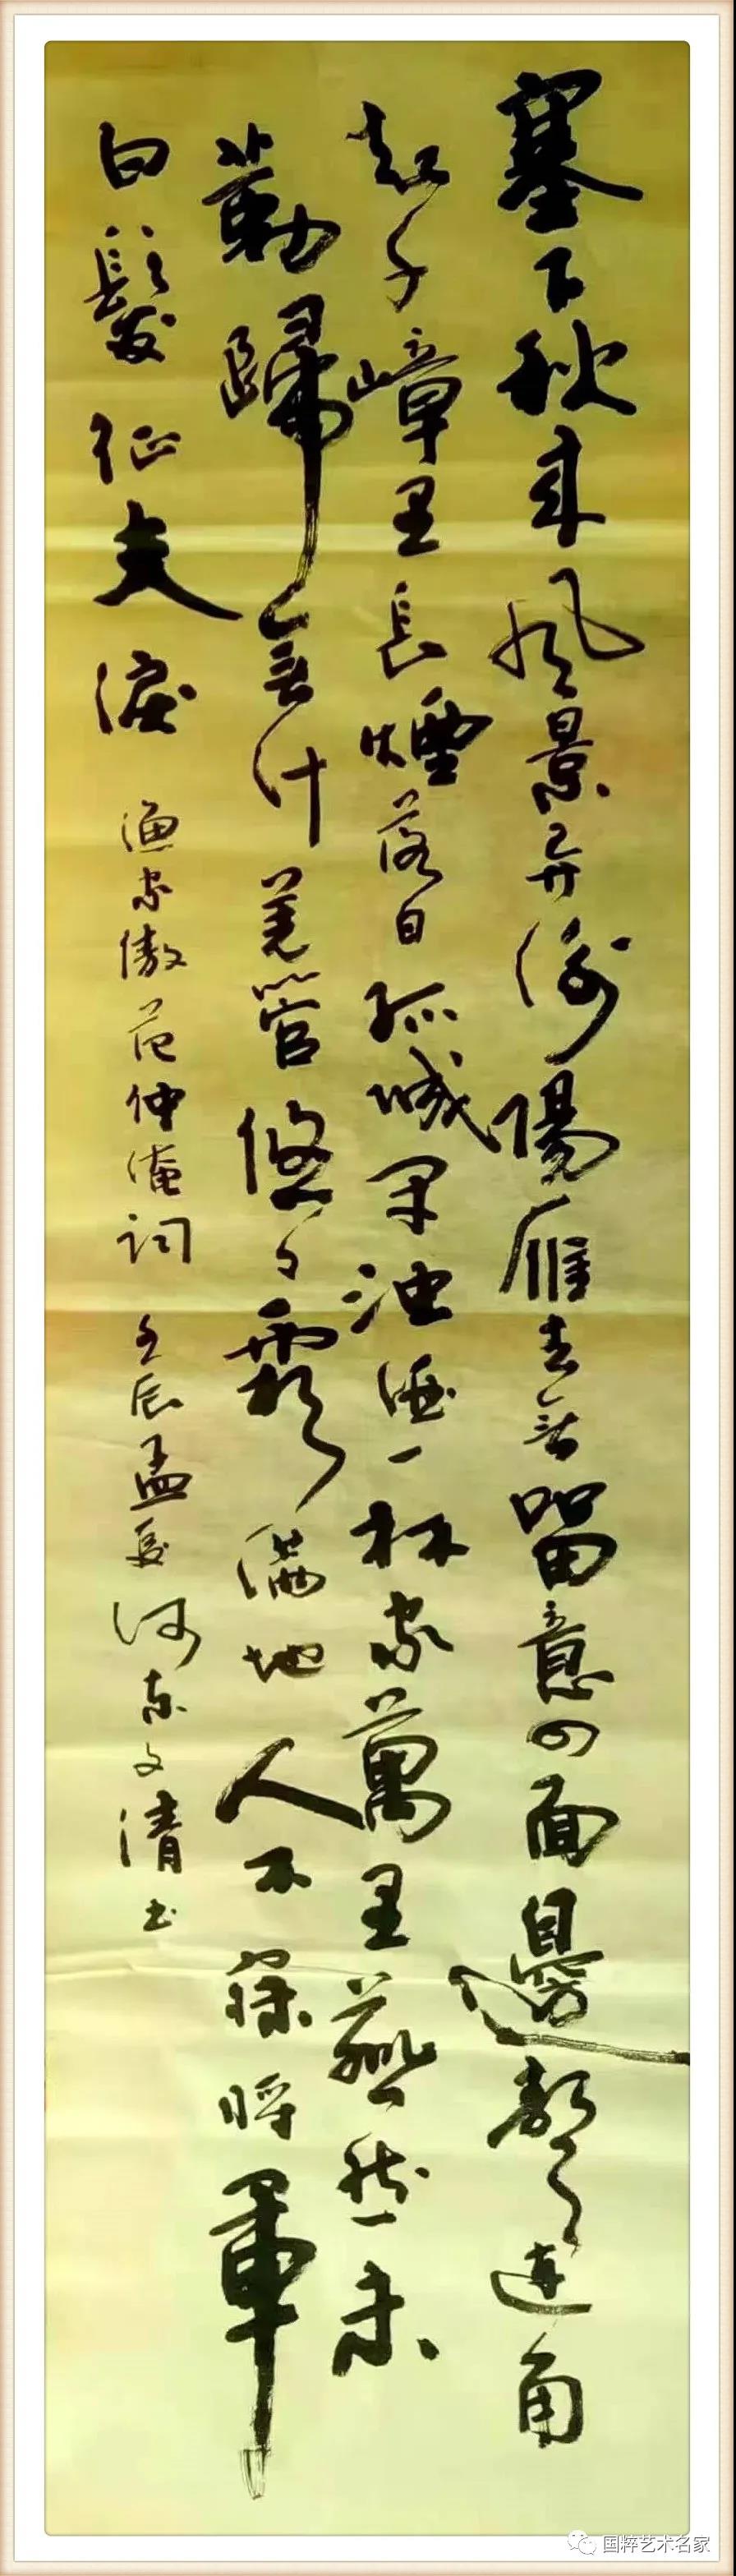 塞下秋来风景异衡陽雁去无留意四面邊声连角
起千嶂里長煙落日孤城闭浊酒一杯家萬里燕然未
勒歸无计羌管悠々霜满地人不寐将軍
白髮征夫淚 渔家傲范仲淹词 壬辰孟夏河东文清书
国粹艺术名家